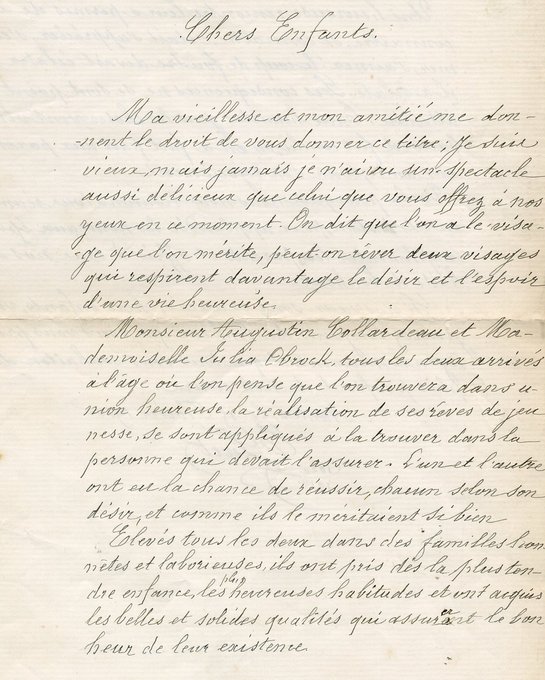 Chers Enfants.
Ma vieillesse et mon amitié me don-
-nent le droit de vous donner ce titre; Je suis
vieux, mais jamais je n'ai vu un spectacle
aussi délicieux que celui que vous offrez à nos
yeux en ce moment. On dit que l'on a le visa-
-ge que l'on mérite, peut-on rêver deux visages
qui respirent davantage le désir et l'espoir
d'une vie heureuse.
Monsieur Augustin Collardeau et Ma-
demoiselle Julia Obrock, tous les deux arrivés
à l'âge où l'on pense que l'on trouvera dans u-
nion heureuse, la réalisation de ses rêves de jeu
nesse, se sont appliqués à la trouver dans la
personne qui devait l'assurer. L'un et l'autre
ont eu la chance de réussir, chacun selon son
désir, et comme ils le méritaient si bien
Elevés tous les deux dans des familles hon
nêtes et laborieuses, ils ont pris dès la plus ten-
dre enfance, les plus heureuses habitudes et ont acquis
les belles et solides qualités qui assurent le bon
heur de leur existence.